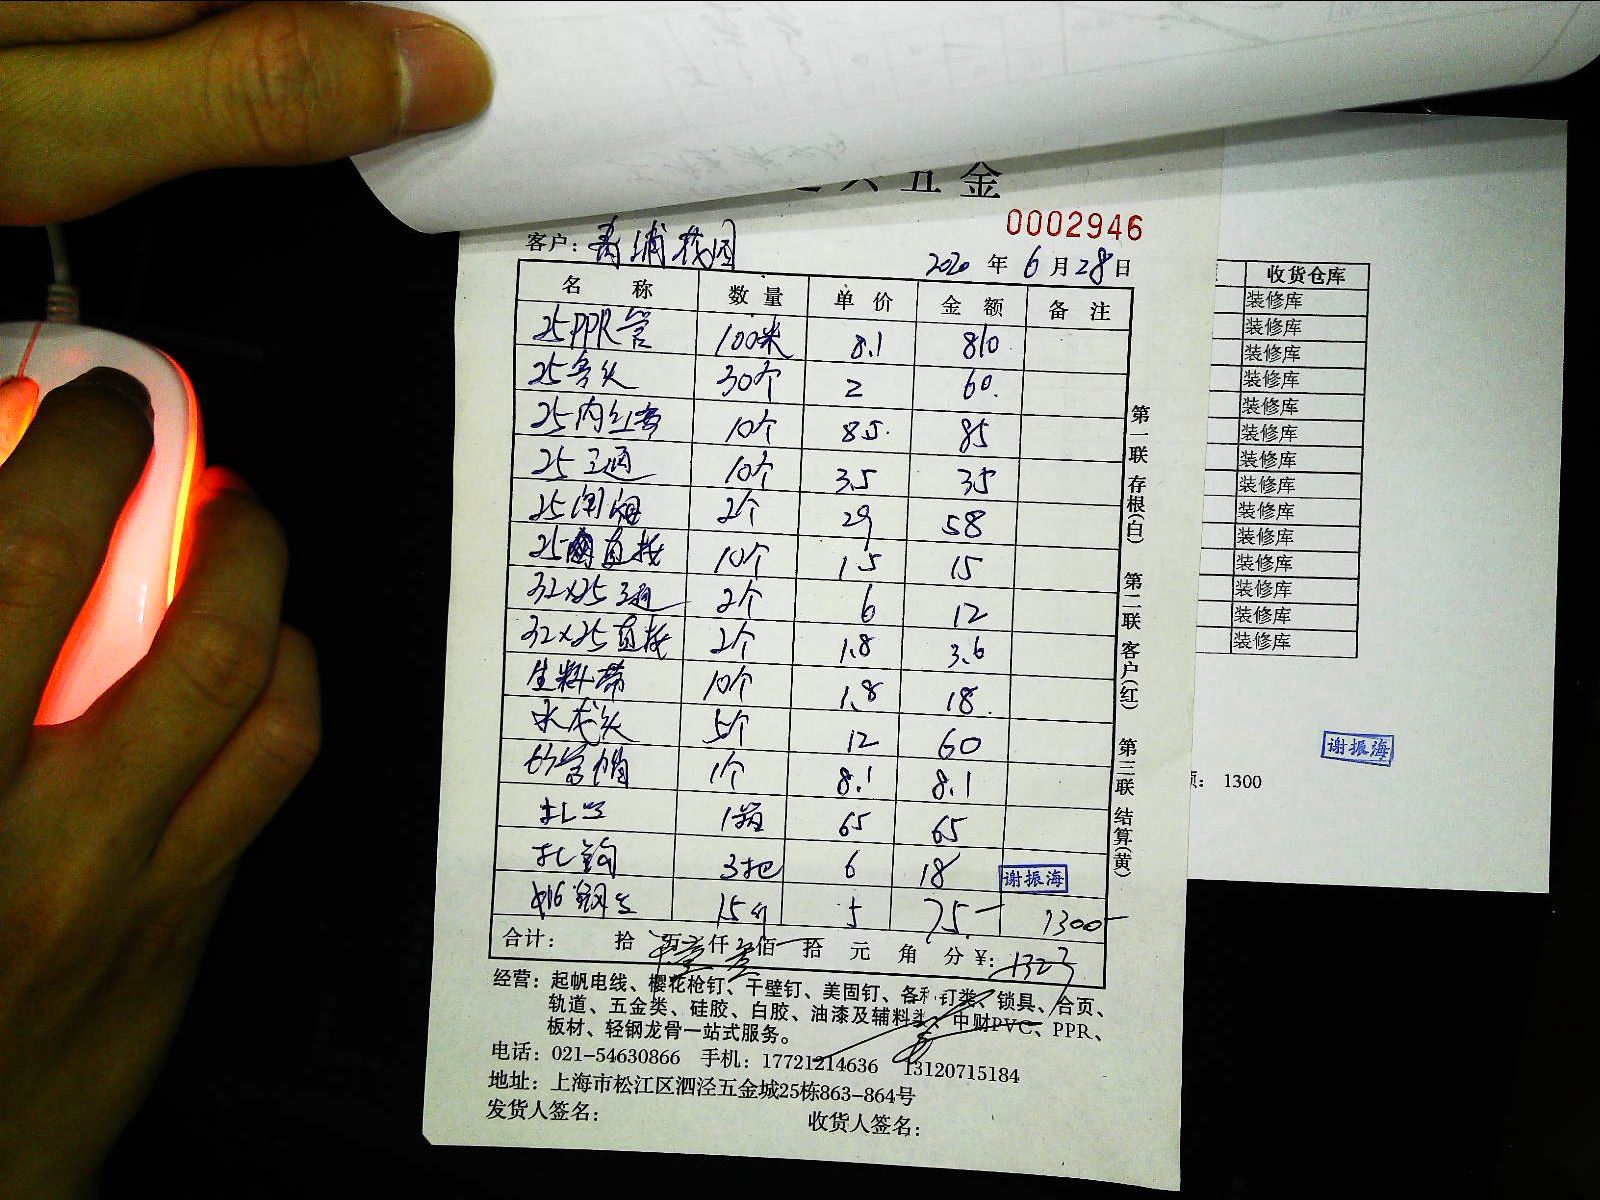 五金
0002946
客户：青浦花园
2020 年 6 月 28 日
名 称 数 量 单 价 金 额 备 注
25PPR管 100米 8.1 810
25弯头 30个 2 60.
25内红弯 10个 8.5 85
25三通 10个 3.5 35
25闸阀 2个 29 58
25直接 10个 1.5 15
32×25三通 2个 6 12
32×25直接 2个 1.8 3.6
生料带 10个 1.8 18.
水龙头 5个 12 60
1个 8.1 8.1
扎丝 1箱 65 65
扎钩 3把 6 18 谢振海
φ16钢 15 5 75.- 1300-
合计： 拾 万 仟 佰 拾 元 角 分 ￥：1322
经营：起帆电线、樱花枪钉、干壁钉、美固钉、各种钉类、锁具、合页、
轨道、五金类、硅胶、白胶、油漆及辅料类、中财PVC、PPR、
板材、轻钢龙骨一站式服务。
电话：021-54630866 手机：17721214636 13120715184
地址：上海市松江区泗泾五金城25栋863-864号
发货人签名： 收货人签名：
第一联 存根(白) 第二联 客户(红) 第三联 结算(黄)
收货仓库
装修库
装修库
装修库
装修库
装修库
装修库
装修库
装修库
装修库
装修库
装修库
装修库
装修库
装修库
谢振海
：1300